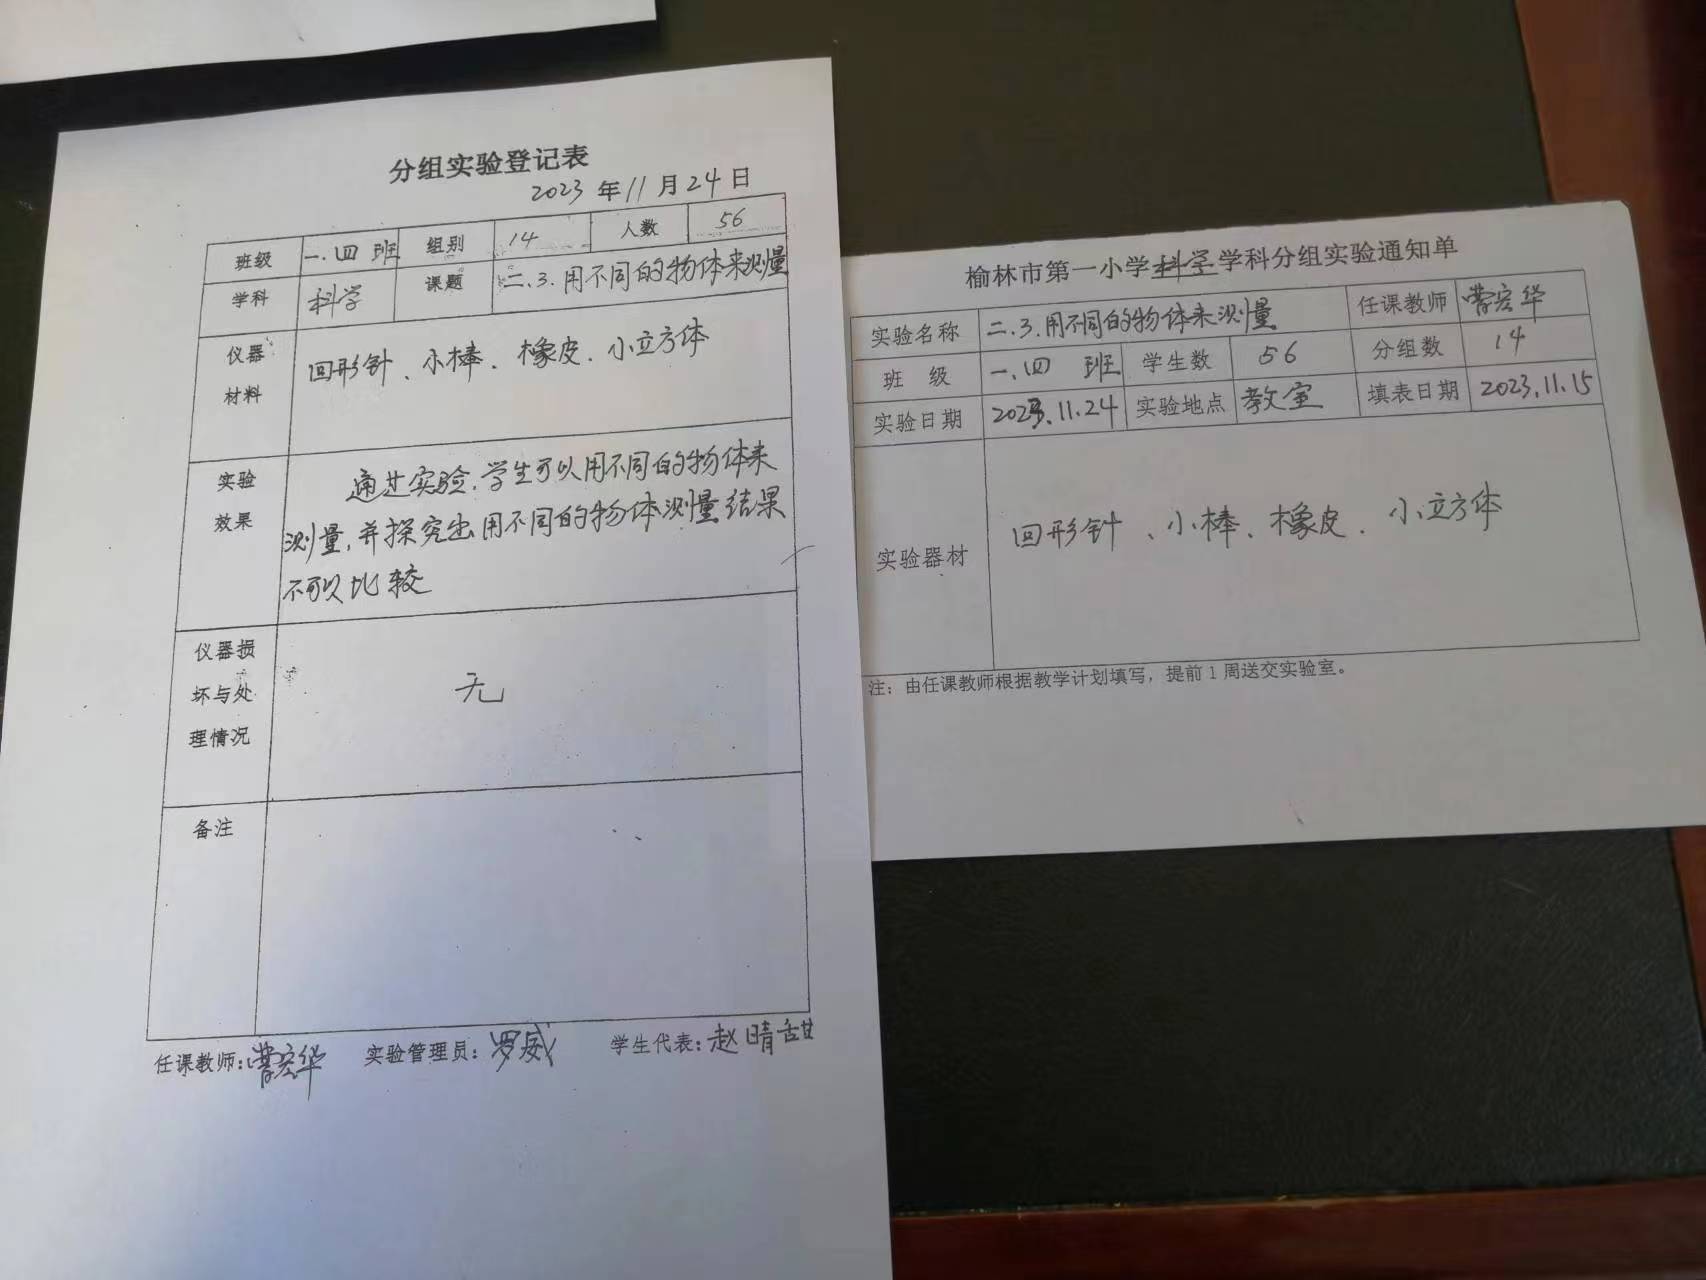 分组实验登记表
2023 年 11 月 24 日
班级 一.四 班 组别 14 人数 56
学科 科学 课题 二.3.用不同的物体来测量
仪器
材料
回形针、小棒、橡皮、小立方体
实验
效果
通过实验,学生可以用不同的物体来
测量,并探究出用不同的物体测量结果
不可以比较
仪器损
坏与处
理情况
无
备注
任课教师:曹宏华 实验管理员:罗威 学生代表:赵晴甜
榆林市第一小学科学学科分组实验通知单
实验名称 二.3.用不同的物体来测量 任课教师 曹宏华
班 级 一.四 班 学生数 56 分组数 14
实验日期 2023.11.24 实验地点 教室 填表日期 2023.11.15
实验器材 回形针、小棒、橡皮.小立方体
注:由任课教师根据教学计划填写,提前1周送交实验室。